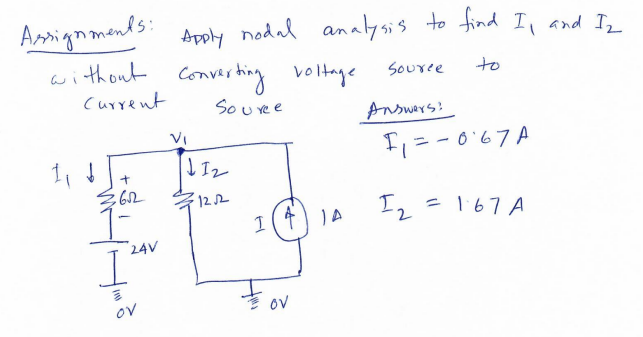 Assignments: Apply nodal analysis to find I₁ and I₂
without converting voltage source to
current source
Answers:
I₁ = -0.67A
I₂ = 1.67A
V₁
I₁ ↓
+
6Ω
-
24V
0V
↓ I₂
12Ω
I
1A
0V